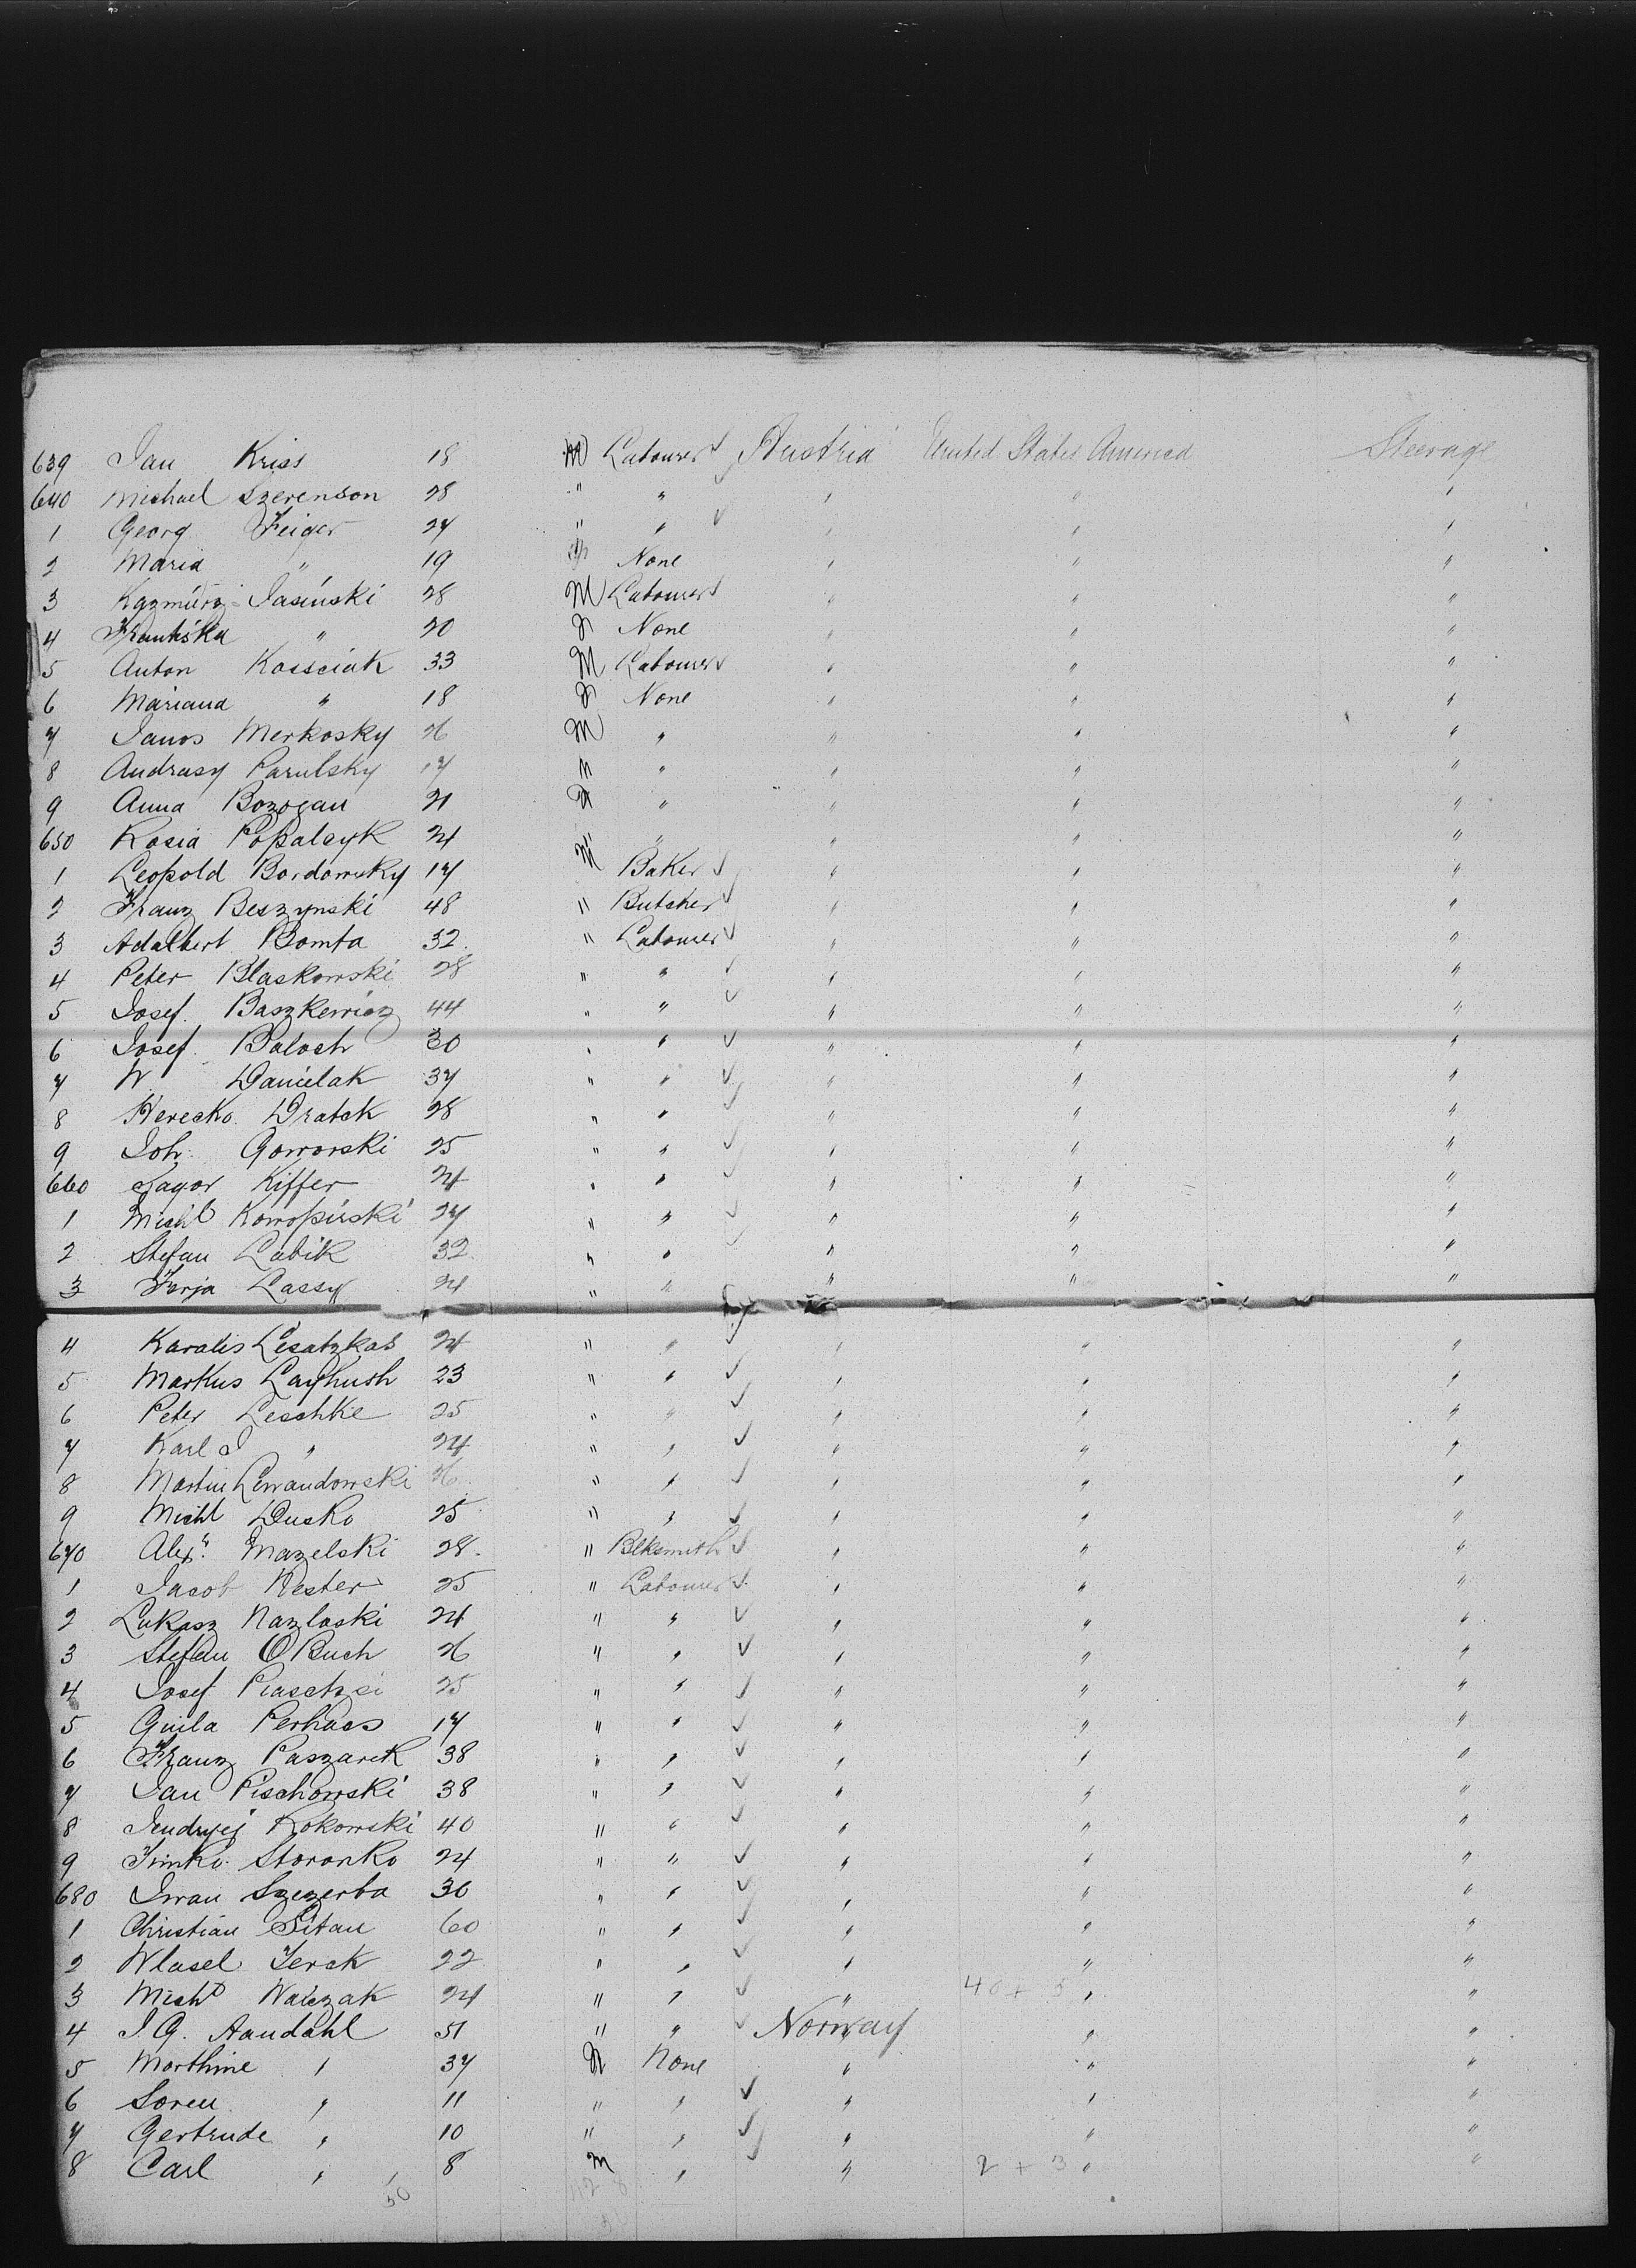 639 Jan Kriss 18 M Labourer Austria United States America Steerage
640 Michael Szerenson 28 " " " " "
1 Georg Feiger 27 " " " " "
2 Maria " 19 F None " " "
3 Kazmierz Jasinski 28 M Labourer " " "
4 Frantiska " 20 F None " " "
5 Anton Kossciak 33 M Labourer " " "
6 Mariana " 18 F None " " "
7 Janos Merkosky 26 M " " " "
8 Andrasy Parulsky 17 " " " "
9 Anna Bozogan 21 F " " " "
650 Rosia Popalcyk 24 " " " " "
1 Leopold Bordowsky 17 M Baker " " "
2 Franz Beszynski 48 " Butcher " " "
3 Adalbert Bomta 32 " Labourer " " "
4 Peter Blaskowski 28 " " " " "
5 Josef Baszkewicz 44 " " " " "
6 Josef Baloch 30 " " " " "
7 W Danielak 37 " " " " "
8 Herecko Dratck 28 " " " " "
9 Joh. Goworski 25 " " " " "
660 Jagor Kiffer 24 " " " " "
1 Michl Konopinski 27 " " " " "
2 Stefan Labik 32 " " " " "
3 Ferja Lassy 24 " " " " "
4 Karalis Lesatzkas 24 " " " " "
5 Markus Layhush 23 " " " " "
6 Peter Leschke 25 " " " " "
7 Karl J " 24 " " " " "
8 Martin Lewandowski 26 " " " " "
9 Michl Dusko 25 " " " " "
670 Alexr. Mazelski 28 " Blksmith " " "
1 Jacob Nester 25 " Labourer " " "
2 Lukasz Nazloski 24 " " " " "
3 Stefan O Buch 26 " " " " "
4 Josef Piaschzi 25 " " " " "
5 Guila Perhacs 17 " " " " "
6 Franz Paszarek 38 " " " " "
7 Jan Pischowski 38 " " " " "
8 Jendryej Rokowski 40 " " " " "
9 Timko Storonko 24 " " " " "
680 Iwan Szczerba 30 " " " " "
1 Christian Sitan 60 " " " " "
2 Wlasel Terck 22 " " " " "
3 Michl Walczak 24 " " " 40 + 3 " "
4 J.G. Aandahl 51 " " Norway " "
5 Marthine " 37 F None " " "
6 Soren " 11 " " " " "
7 Gertrude " 10 " " " " "
8 Carl " 8 M " " 2 + 3 " "
50